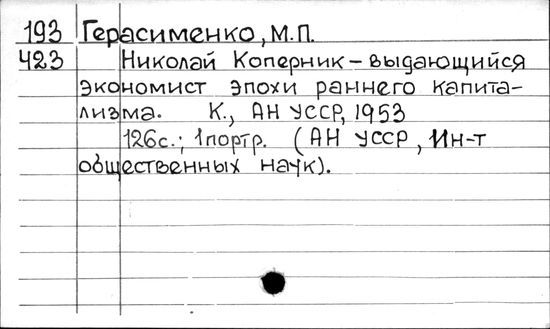 193 Герасименко, М.П.
423 Николай Коперник – выдающийся
экономист эпохи раннего капита-
лизма. К., АН УССР, 1953
126с.; 1портр. (АН УССР, Ин-т
общественных наук).